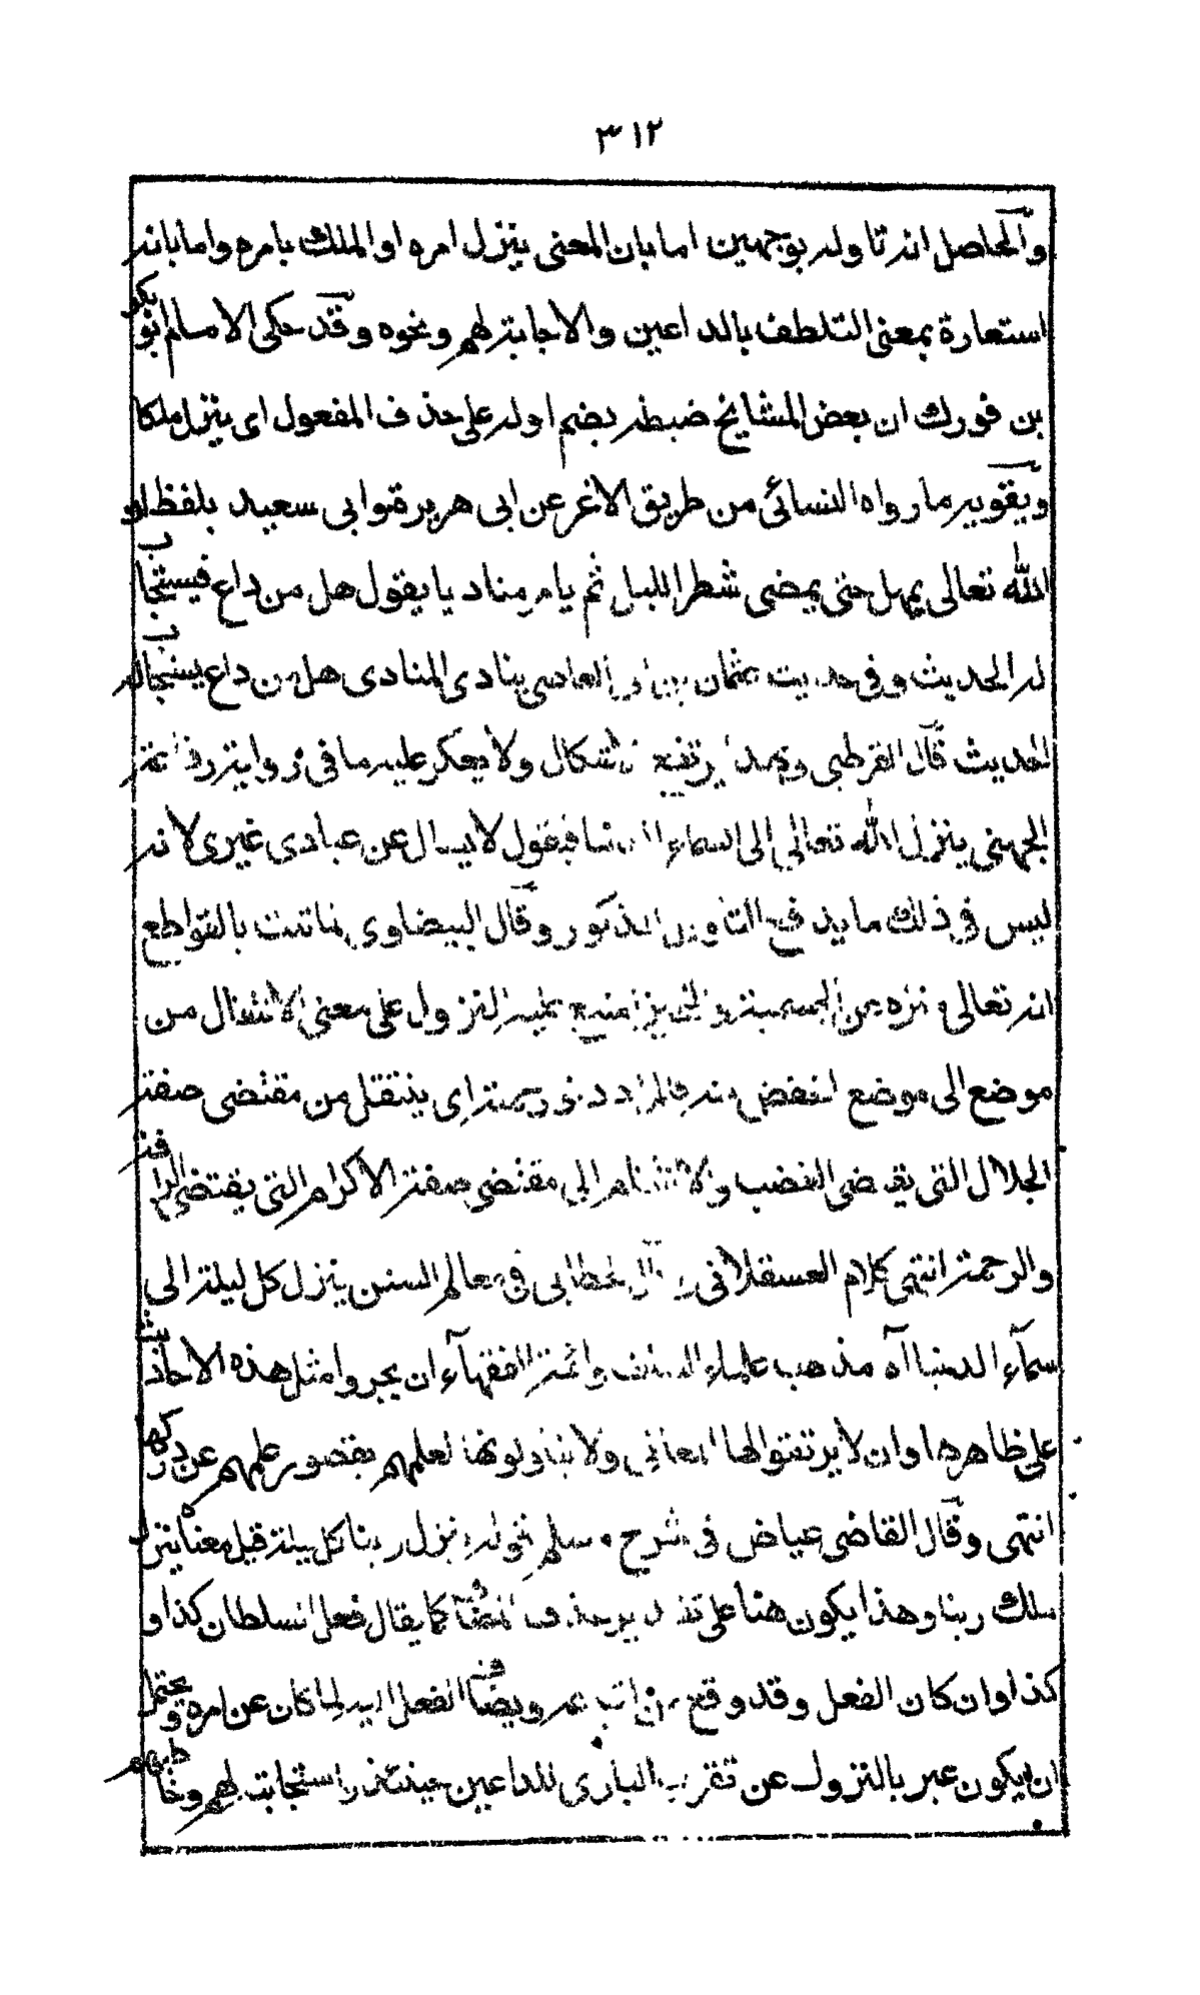 ٣١٢
والحاصل انه تاوله بوجهين اما بان المعنى ينزل امره او الملك بامره واما بانه
استعارة بمعنى التلطف بالداعين والاجابة لهم ونحوه وقد حكى الامام ابو بكر
بن فورك ان بعض المشايخ ضبطه بضم اوله على حذف المفعول اى ينزل ملكا
ويقويه ما رواه النسائى من طريق الاغر عن ابى هريرة وابى سعيد بلفظ ان
الله تعالى يمهل حتى يمضى شطر الليل ثم يامر مناديا يقول هل من داع فيستجاب
له الحديث وفى حديث عثمان بن ابى العاصى ينادى المنادى هل من داع يستجاب له
الحديث قال القرطبى وبهذا يرتفع الاشكال ولا يعكر عليه ما فى رواية رفاعة
الجهنى ينزل الله تعالى الى السماء الدنيا فيقول لا يسال عن عبادى غيرى لانه
ليس فى ذلك ما يدفع التاويل المذكور وقال البيضاوى لما ثبت بالقواطع
انه تعالى منزه عن الجسمية والتحيز امتنع عليه النزول على معنى الانتقال من
موضع الى موضع اخفض منه فالمراد دنو رحمته اى ينتقل من مقتضى صفة
الجلال التى تقتضى الغضب والانتقام الى مقتضى صفة الاكرام التى يقتضى الرافة
والرحمة انتهى كلام العسقلانى وقال الخطابى فى معالم السنن ينزل كل ليلة الى
سمآء الدنيا آه مذهب علماء السلف وائمة الفقهآء ان يجروا مثل هذه الاحاديث
على ظاهرها وان لا يرتقوا لها المعانى ولا يتاولونها لعلمهم بقصور علمهم عن دركها
انتهى وقال القاضى عياض فى شرح مسلم قوله ينزل ربنا كل ليلة قيل معناه ينزل
ملك ربنا وهذا يكون هنا على تقدير حذف المضاف كما يقال فعل السلطان كذا و
كذا وان كان الفعل وقد وقع من اتباعه ويضاف الفعل اليه لما كان عن امره ويحتمل
ان يكون عبر بالنزول عن تقرب البارى للداعين حينئذ واستجابته لهم وخاطبهم